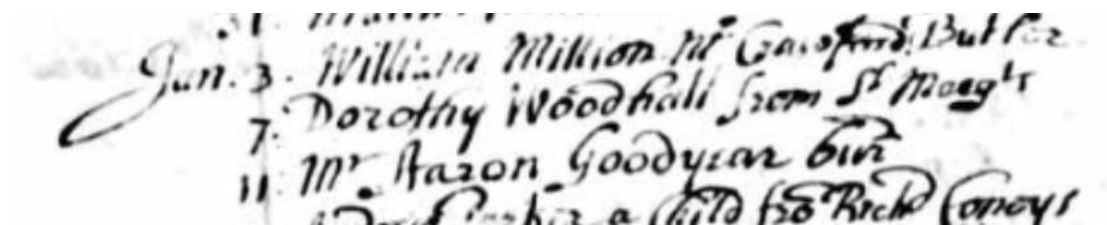 Jan. 3. William Million Mr Crawford. Butler
7. Dorothy Woodhall from St Marg^ts
11. Mr Aaron Goodyear bur
a Child fro Rich Coneys